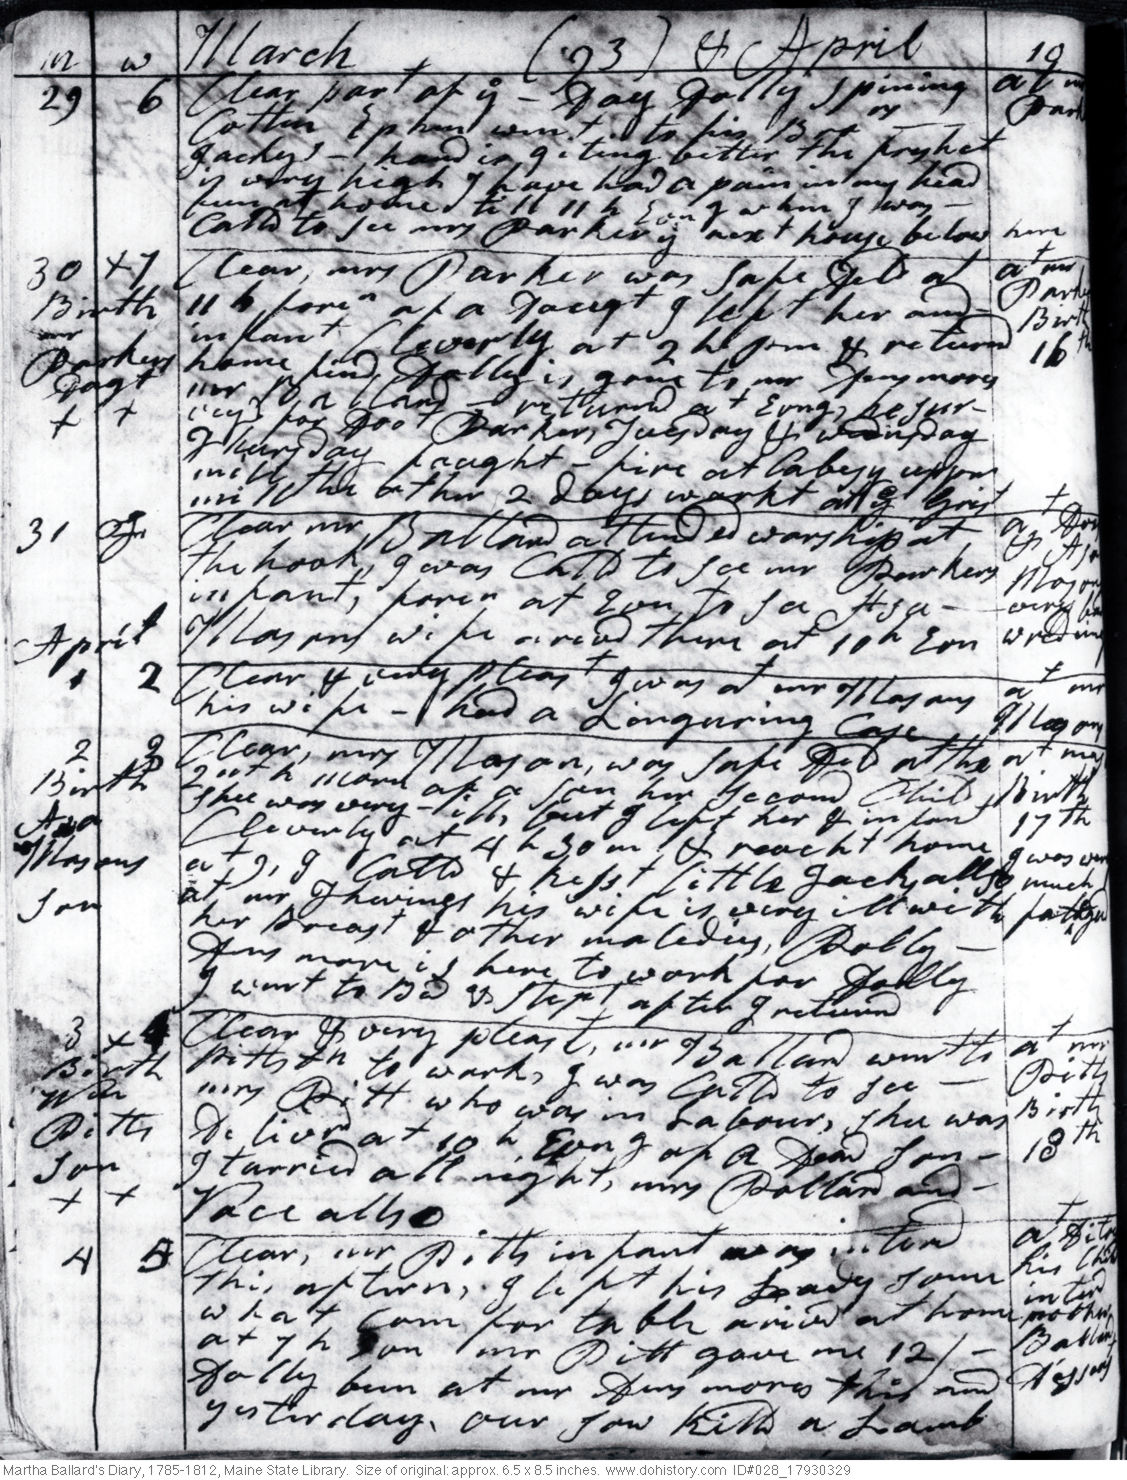 m w March (93) & April 19
29 6 Clear part of ÿ - Day Dolly Spining
Cotten Ephm went to his Brs
Jackys - hand is giting better the freshet
is very high I have had a pain in my head
been at home till 11 h Evng when I was -
Calld to See mrs Parker ÿ next house below here
30 +7 Clear, mrs Parker was Safe Deld at at mr
Birth 11 h foren of a Daugt I left her and Birth
mr infant Cleverly at 2 h pm & returnd 16th
Parkers home find Dolly is gone to mr Densmores
Dagt mr Ballard - returnd at Evng, he Sur-
+ + for Doct Parker, Tuesday & wednsday
Thursday - fire at
mill the other 2 days workt at ÿ Grist
31 Clear mr Ballard attended worship at
the hook, I was Calld to See mr Parkers
infant, foren at Evn to See Asa -
April Masons wife arivd there at 10 h Evn
1 2 Clear & very pleast I was at mr Masons at mr
his wife - had a Linguring Case Masons
2 3 Clear, mrs Mason, was Safe Deld at the
Birth of a Son her Second Child Birth
Asa Shee was very - ill, but I left her & infant 17th
Masons Cleverly at 4 h 30 m & reacht home I was very
Son at 9, I Calld & helpt little Jacky allso much
at mr Thwings his wife is very ill with fatigud
her Breast & other maledies, Dolly -
Densmore is here to work for Dolly
I went to Bed & Slept after I returnd
3 +4 Clear & very pleast, mr Ballard went to at mr
Birth Pittston to work, I was Calld to See - Pitts
Wm mrs Pitt who was in Labour, Shee was Birth
Pitts Delivrd at 10 h Evng of a Dead Son - 18th
Son I tarried all night, mrs Pollard and -
+ + Vace allso
4 5 Clear, mr Pitts infant was interd at Pitts
this aftern, I left his Lady Some his Child
what Comfortable arivd at home interd
at 7 h Evn mr Pitt gave me 12/ -
Dolly been at mr Densmores this and
yesterday. our Sow killd a Lamb
Martha Ballard's Diary, 1785-1812, Maine State Library. Size of original: approx. 6.5 x 8.5 inches. www.dohistory.com ID#028_17930329